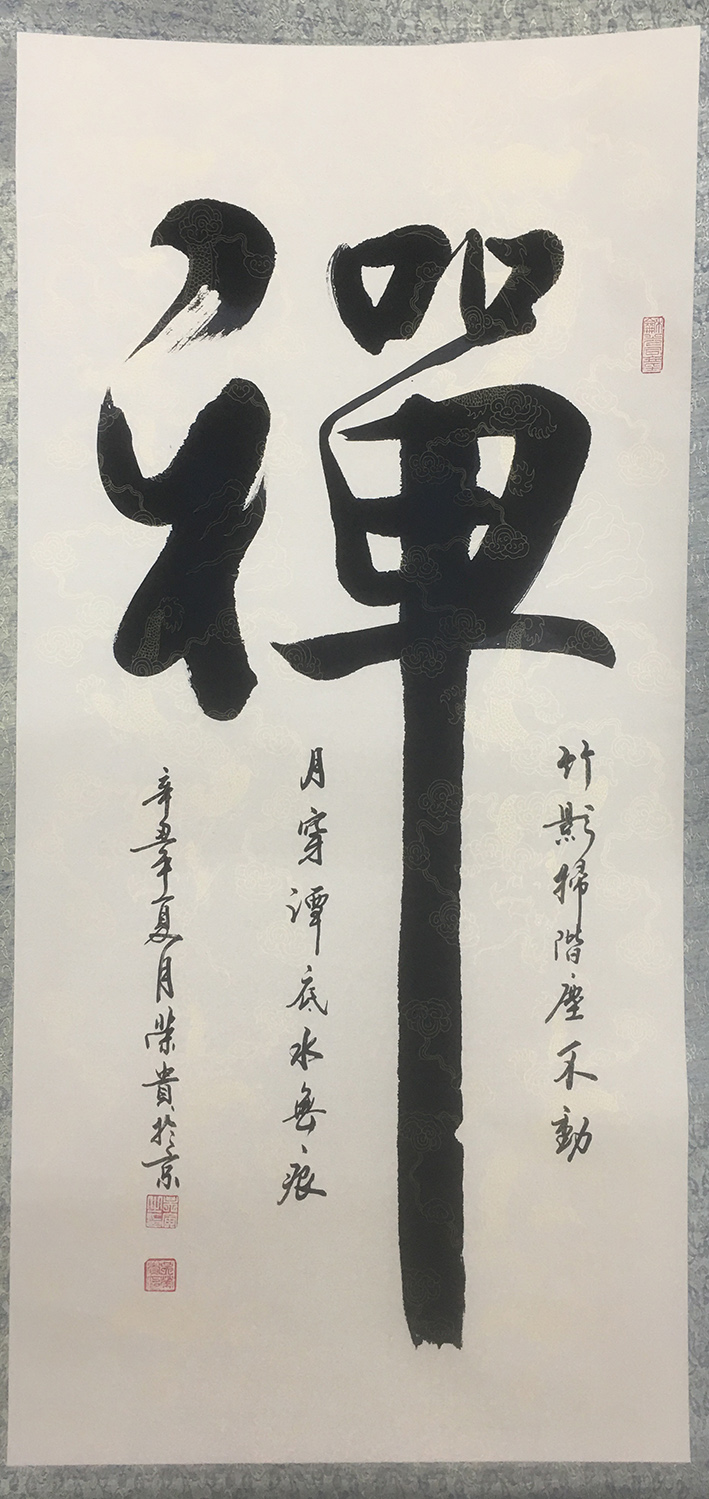 禪
竹影掃階塵不動
月穿潭底水無痕
辛丑年夏月榮貴於京